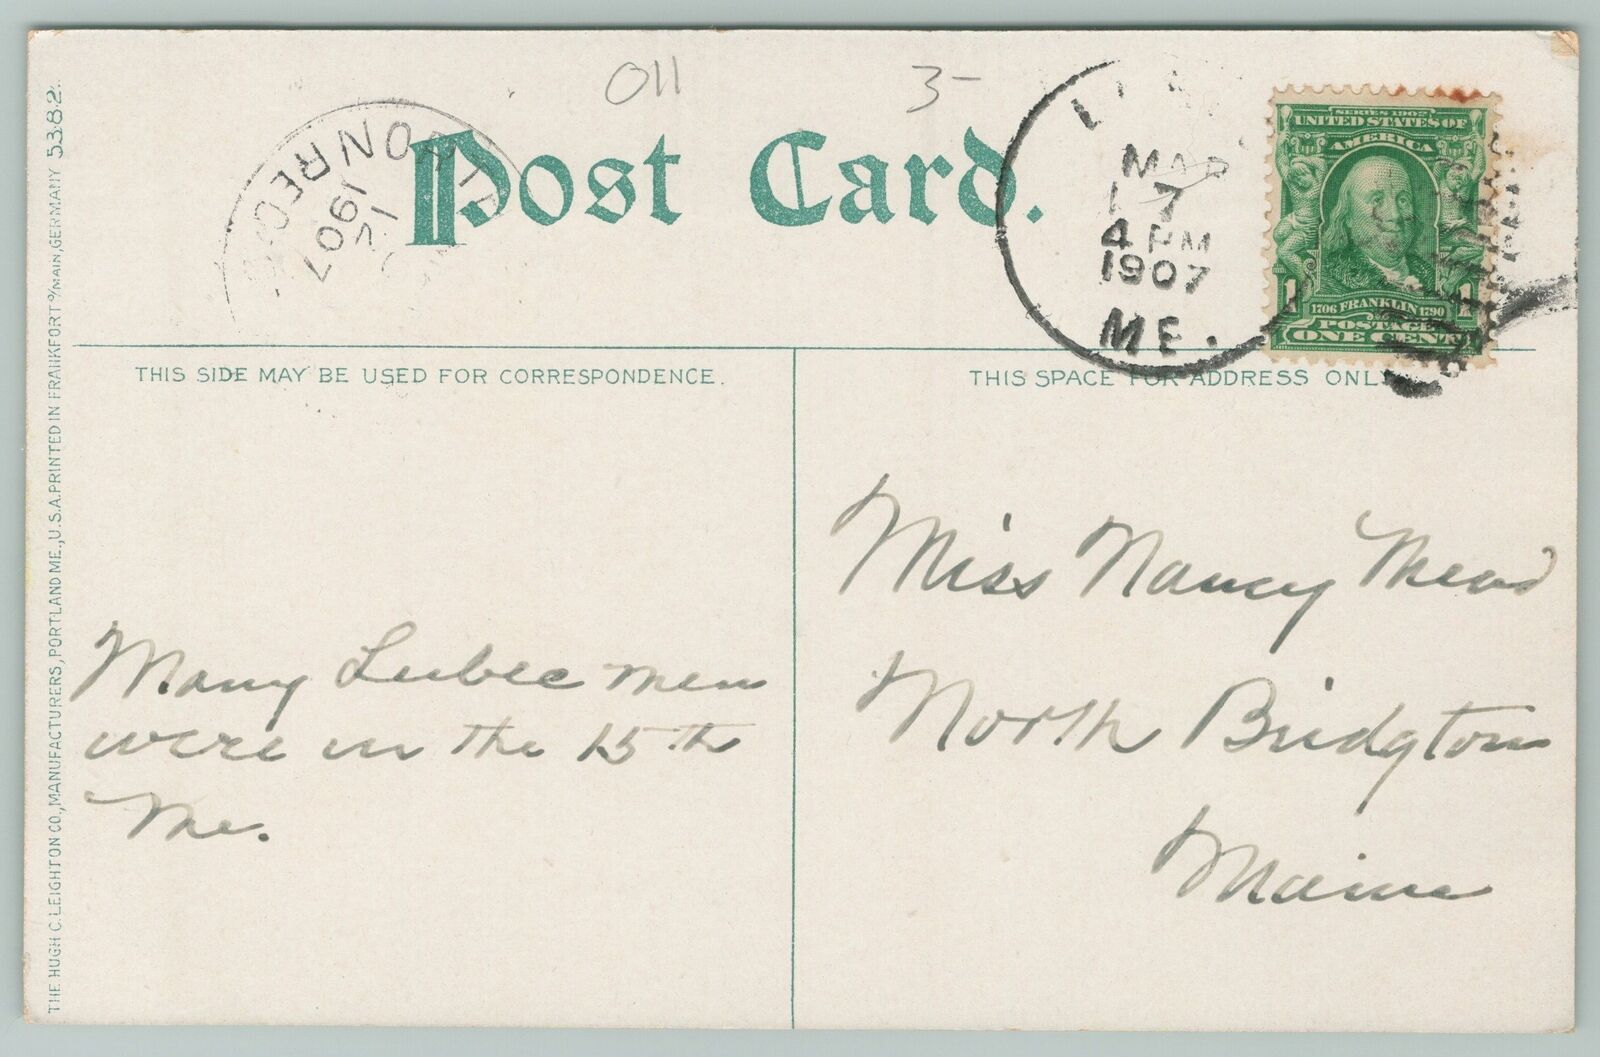 O11
3-
Post Card.
MAR
17
4 PM
1907
ME.
1907
SERIES 1902
UNITED STATES OF
AMERICA
1706 FRANKLIN 1790
1 1
POSTAGE
ONE CENT
THIS SIDE MAY BE USED FOR CORRESPONDENCE.
THIS SPACE FOR ADDRESS ONLY
Many Lubec men
were in the 15th
Me.
Miss Nancy Mead
North Bridgton
Maine
THE HUGH C. LEIGHTON CO., MANUFACTURERS, PORTLAND ME., U.S.A. PRINTED IN FRANKFORT o/MAIN, GERMANY 5382.